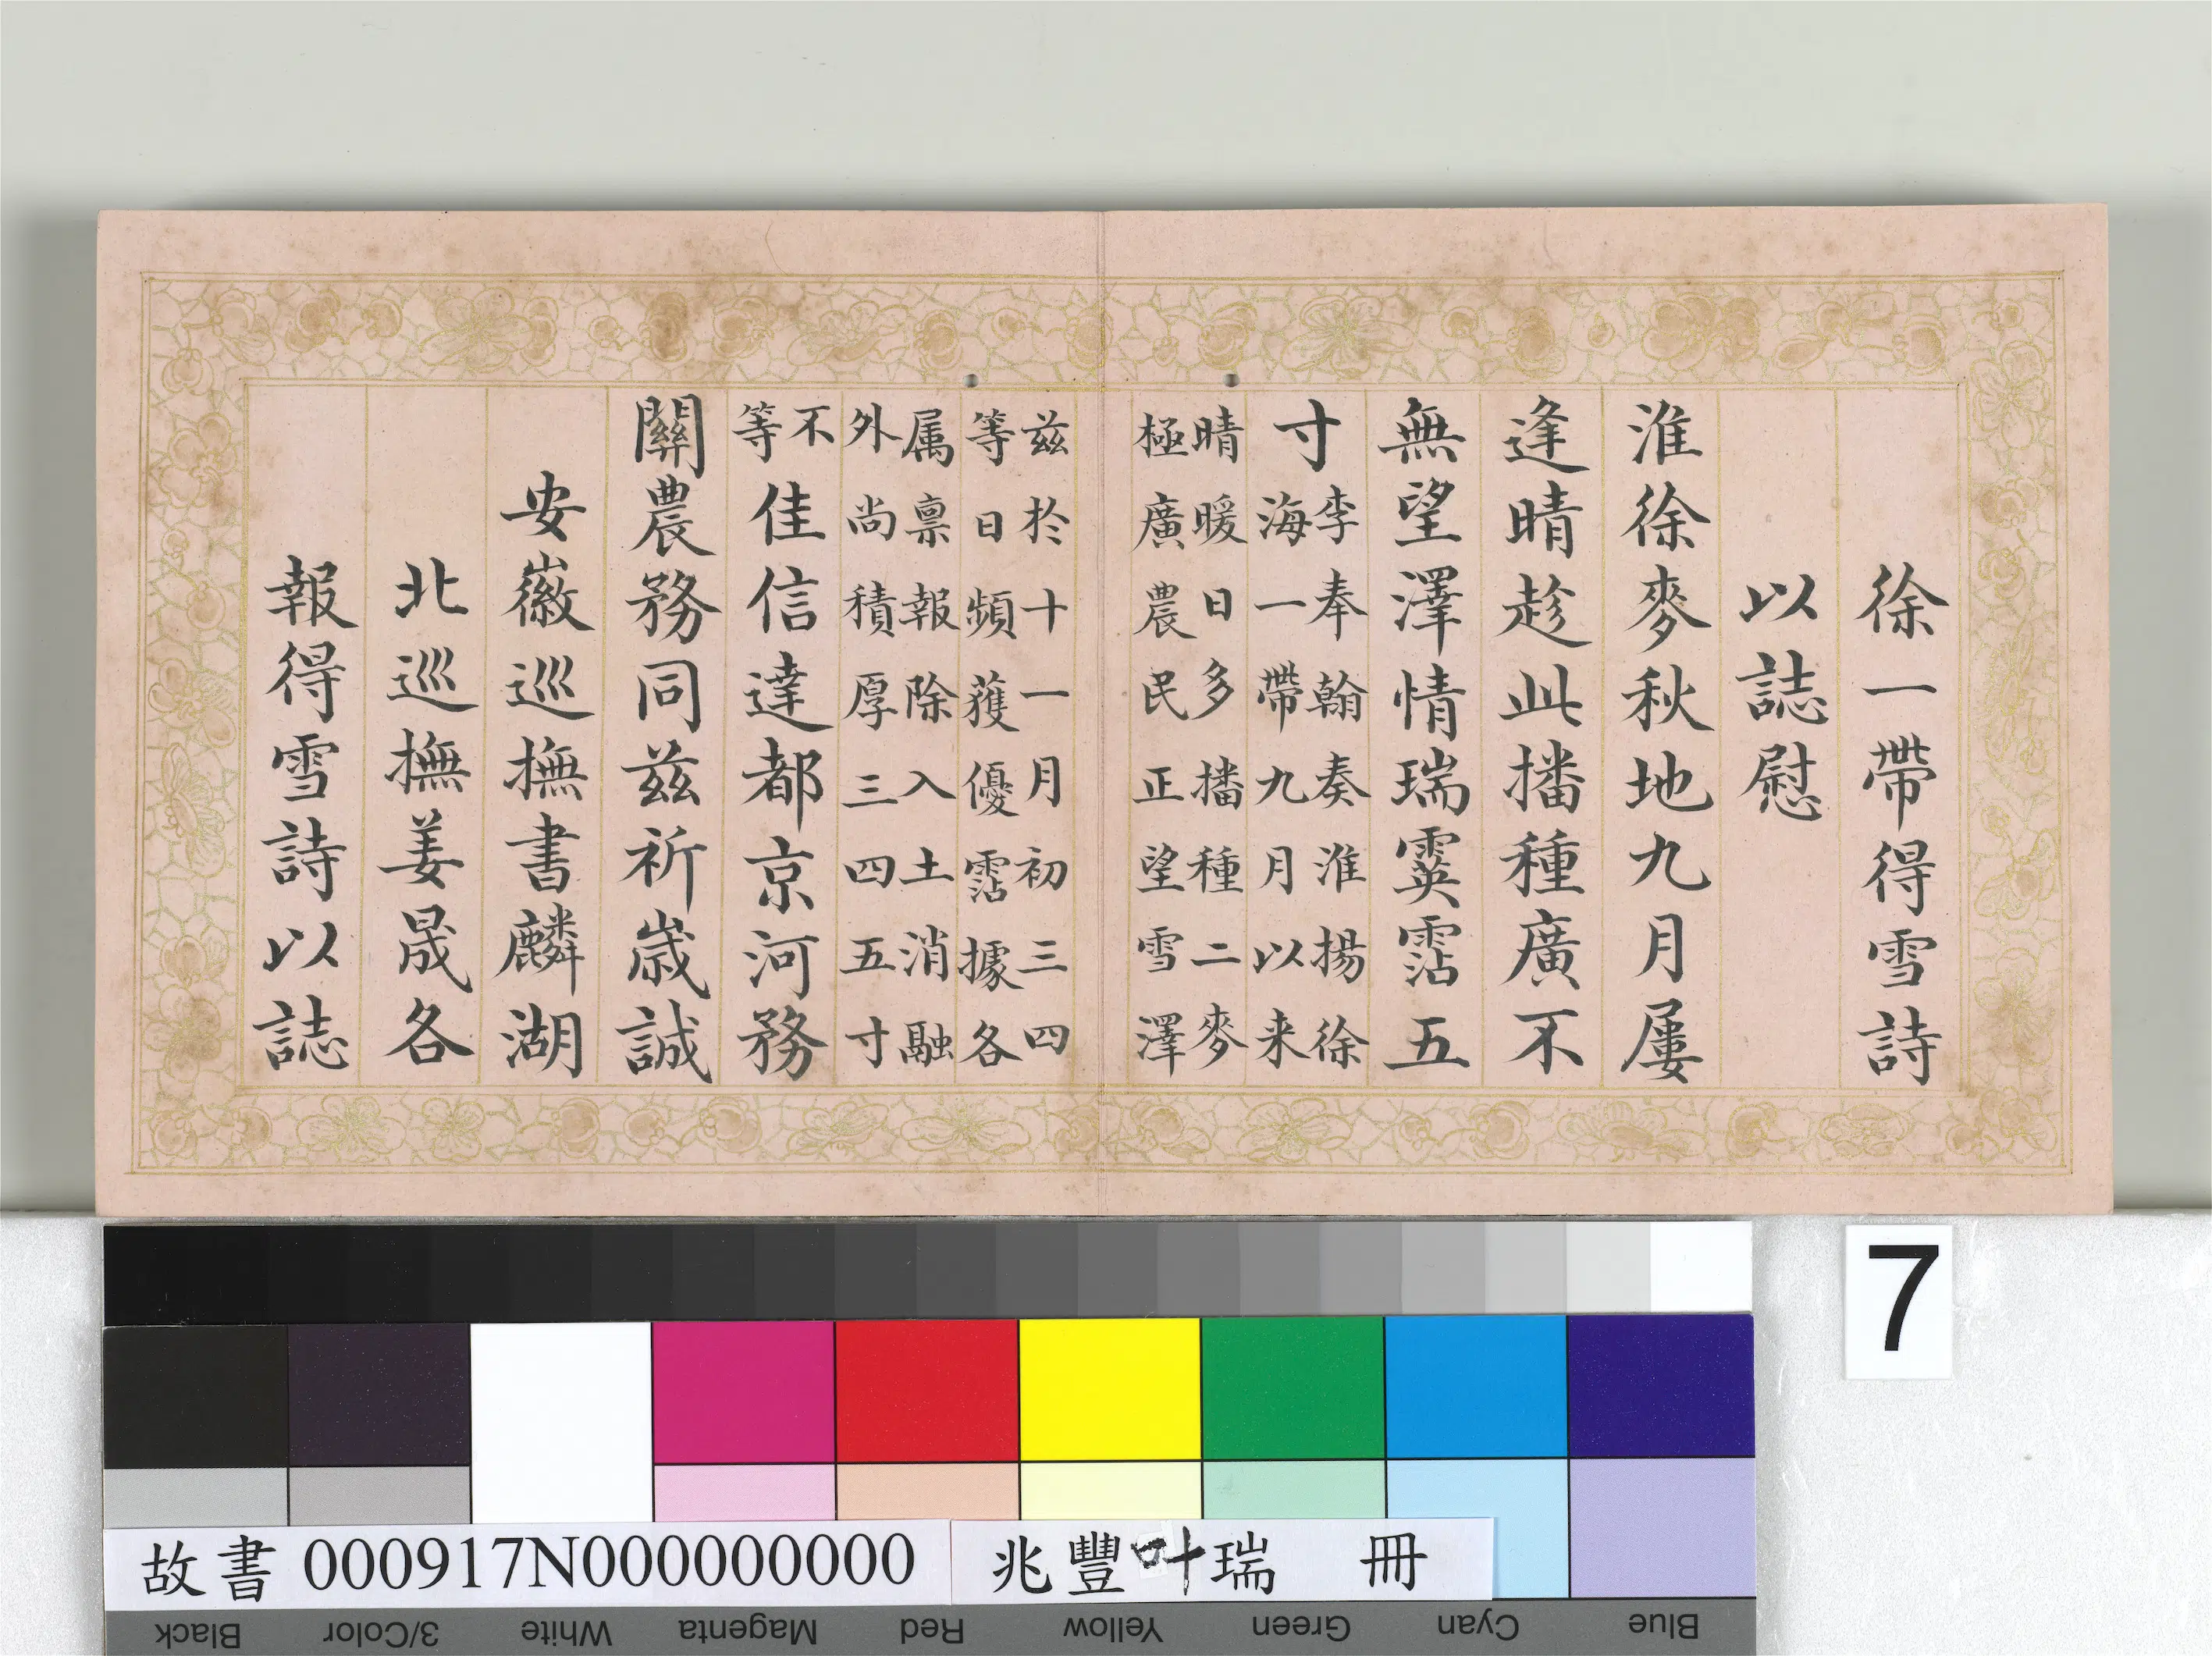 徐一帶得雪詩
以誌慰
淮徐麥秋地九月屢
逢晴趁此播種廣不
無望澤情瑞霙霑五
寸
李奉翰奏淮揚徐
海一帶九月以来
晴暖日多播種二麥
極廣農民正望雪澤
兹於十一月初三四
等日頻獲優霑據各
属禀報除入土消融
外尚積厚三四五寸
不
等
佳信達都京河務
關農務同兹祈嵗誠
安徽巡撫書麟湖
北巡撫姜晟各
報得雪詩以誌
7
故書 000917N000000000 兆豐叶瑞 冊
Black 3/Color White Magenta Red Yellow Green Cyan Blue